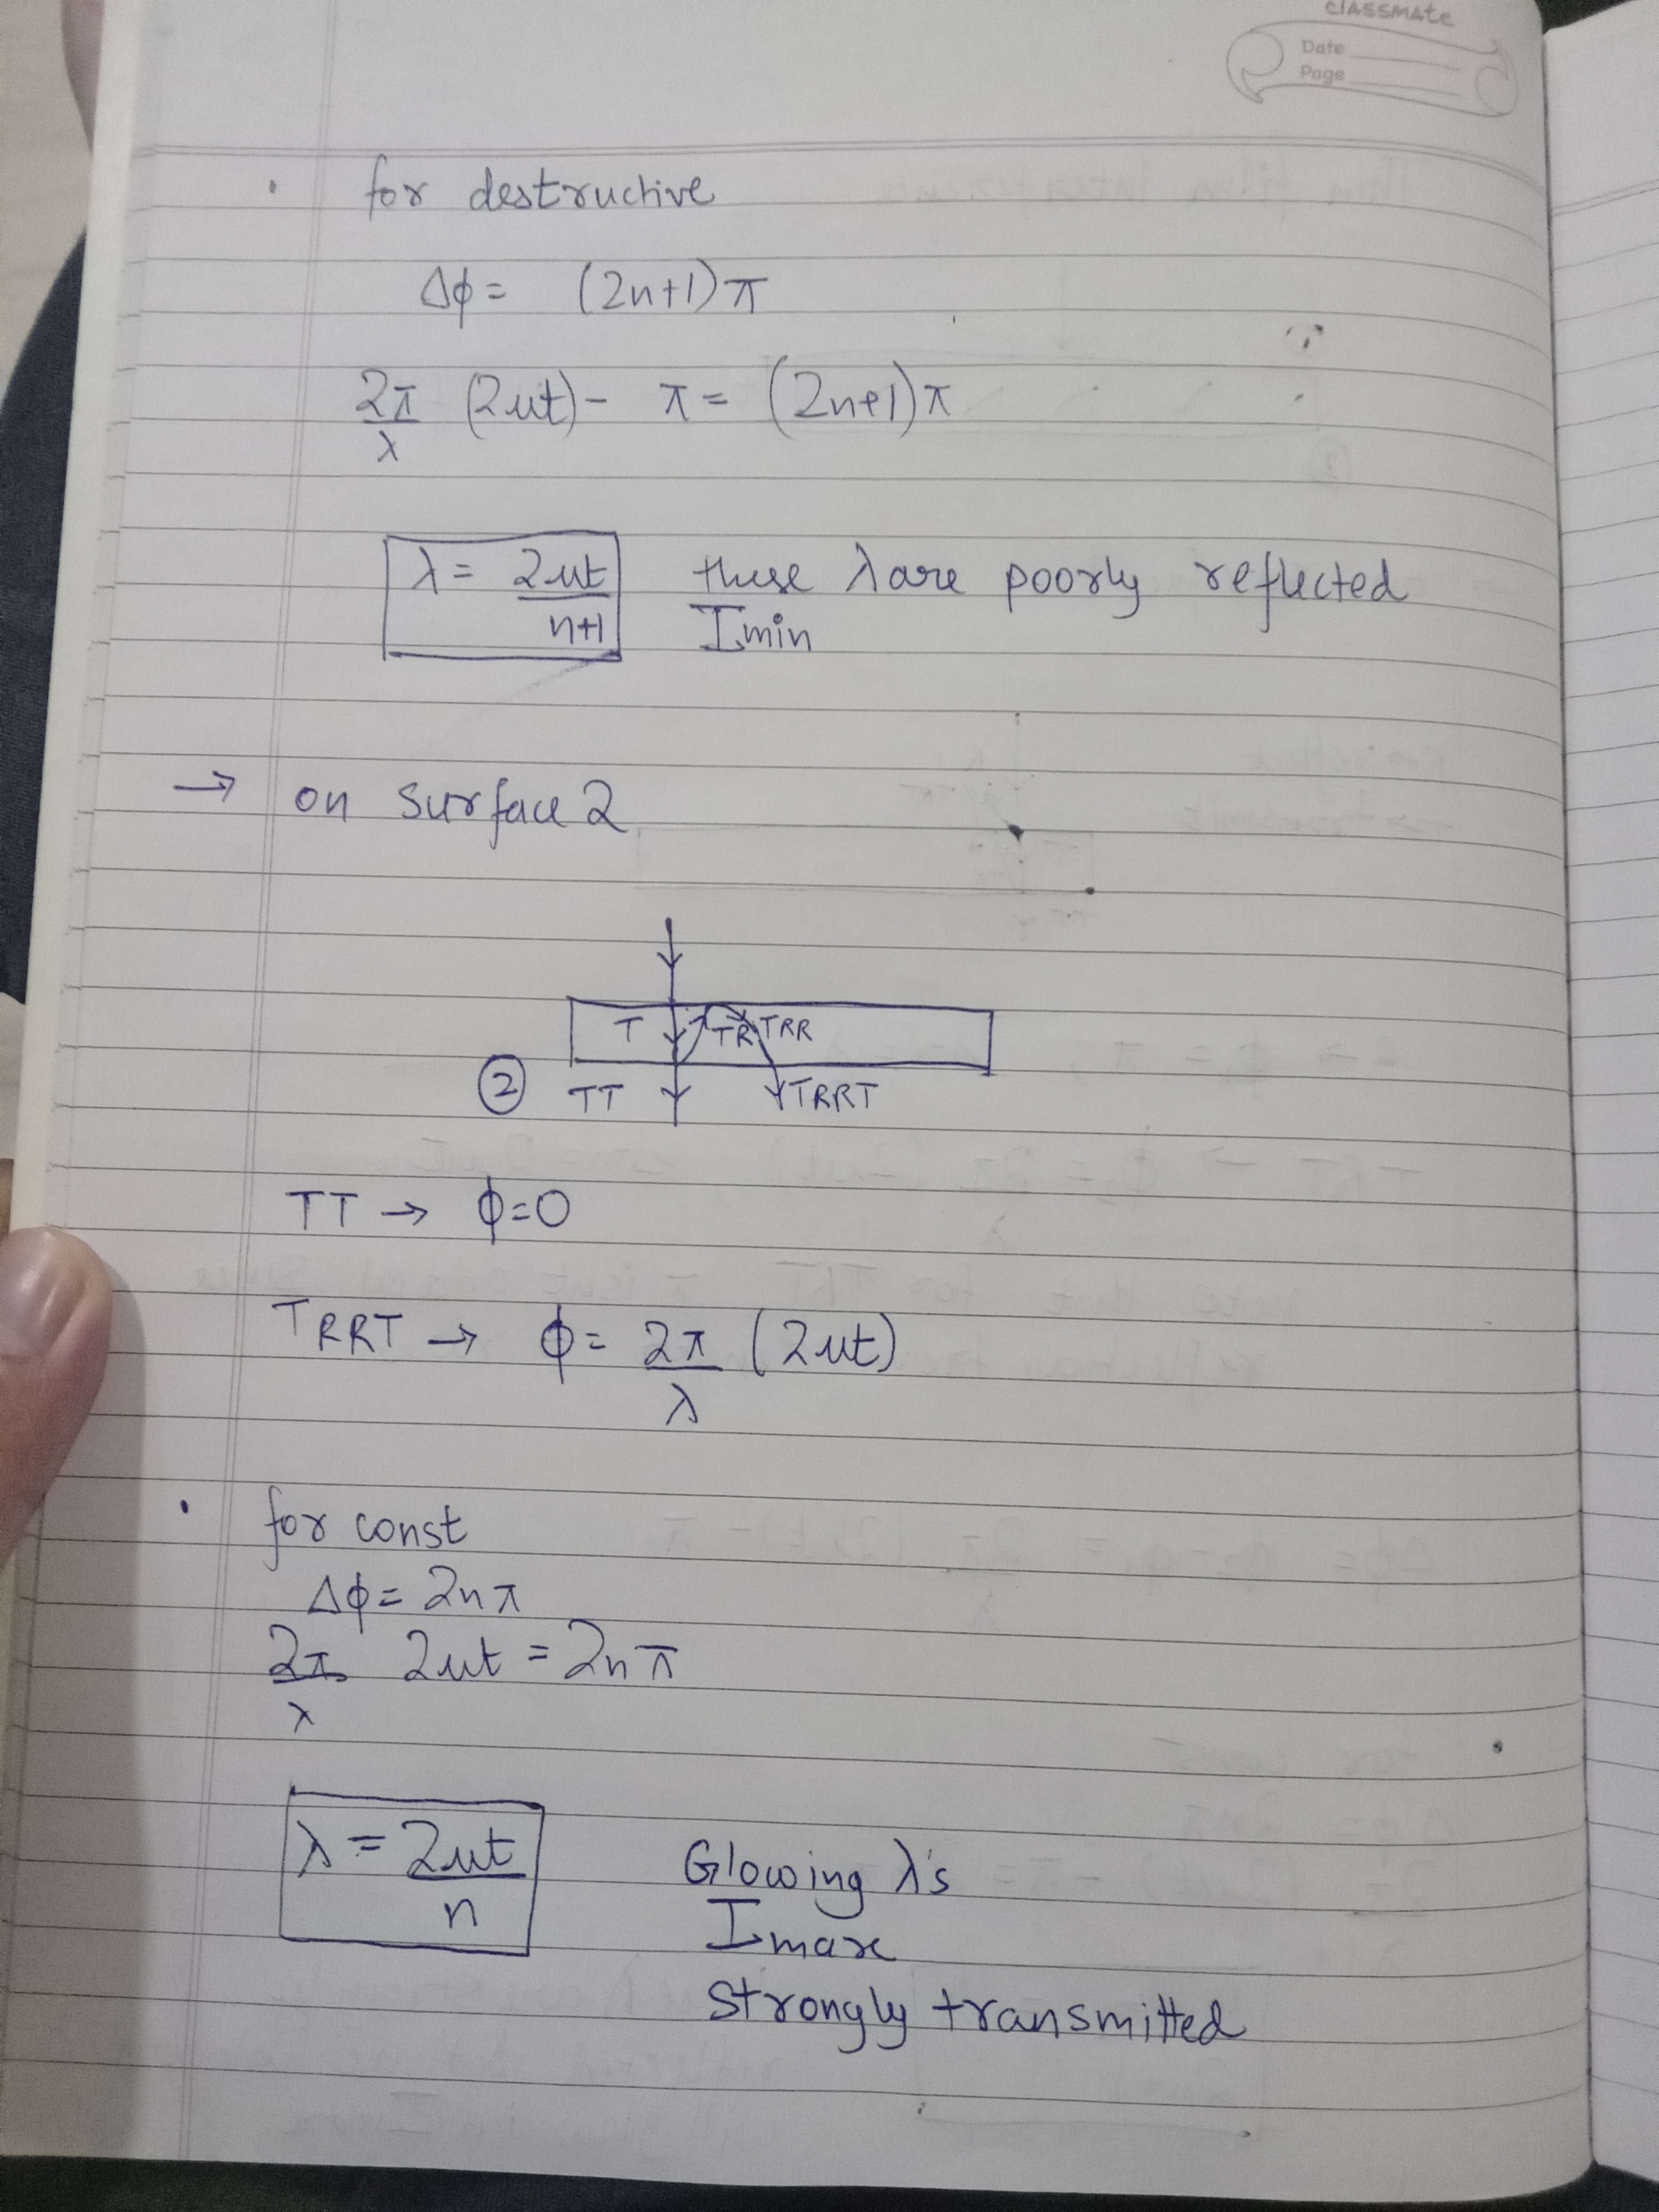 classmate
Date
Page
for destructive
Δϕ = (2n+1)π
2π/λ (2μt) - π = (2n+1)π
λ = 2μt/n+1 these λ are poorly reflected
Imin
→ on surface 2
T TR TRR
② TT TRRT
TT → ϕ=0
TRRT → ϕ = 2π/λ (2μt)
• for const
Δϕ = 2nπ
2π/λ 2μt = 2nπ
λ = 2μt/n Glowing λ's
Imax
Strongly transmitted